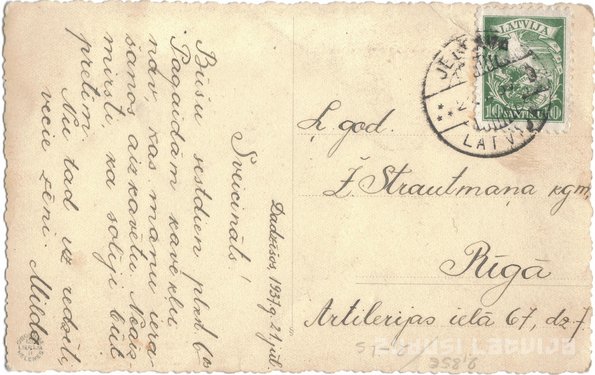 Dadzišos, 1937.g. 21. jūl.
Sveicināts!
Būšu sestdien plkst. 6
Pagaidam kavēkļu
nav, kas manu iera-
šanos aizkavētu. Neaiz-
mirsti, ka solīji būt
pretim.
Nu tad uz redzēti,
vecie zēni. Milda
LATVIJA
10 SANTIMU 10
JELGAVA
LATVIJA
Ļ. god.
Ž. Strautmaņa kgm,
Rīgā
Artilerijas ielā 67, dz. 7.
zudusī latvija